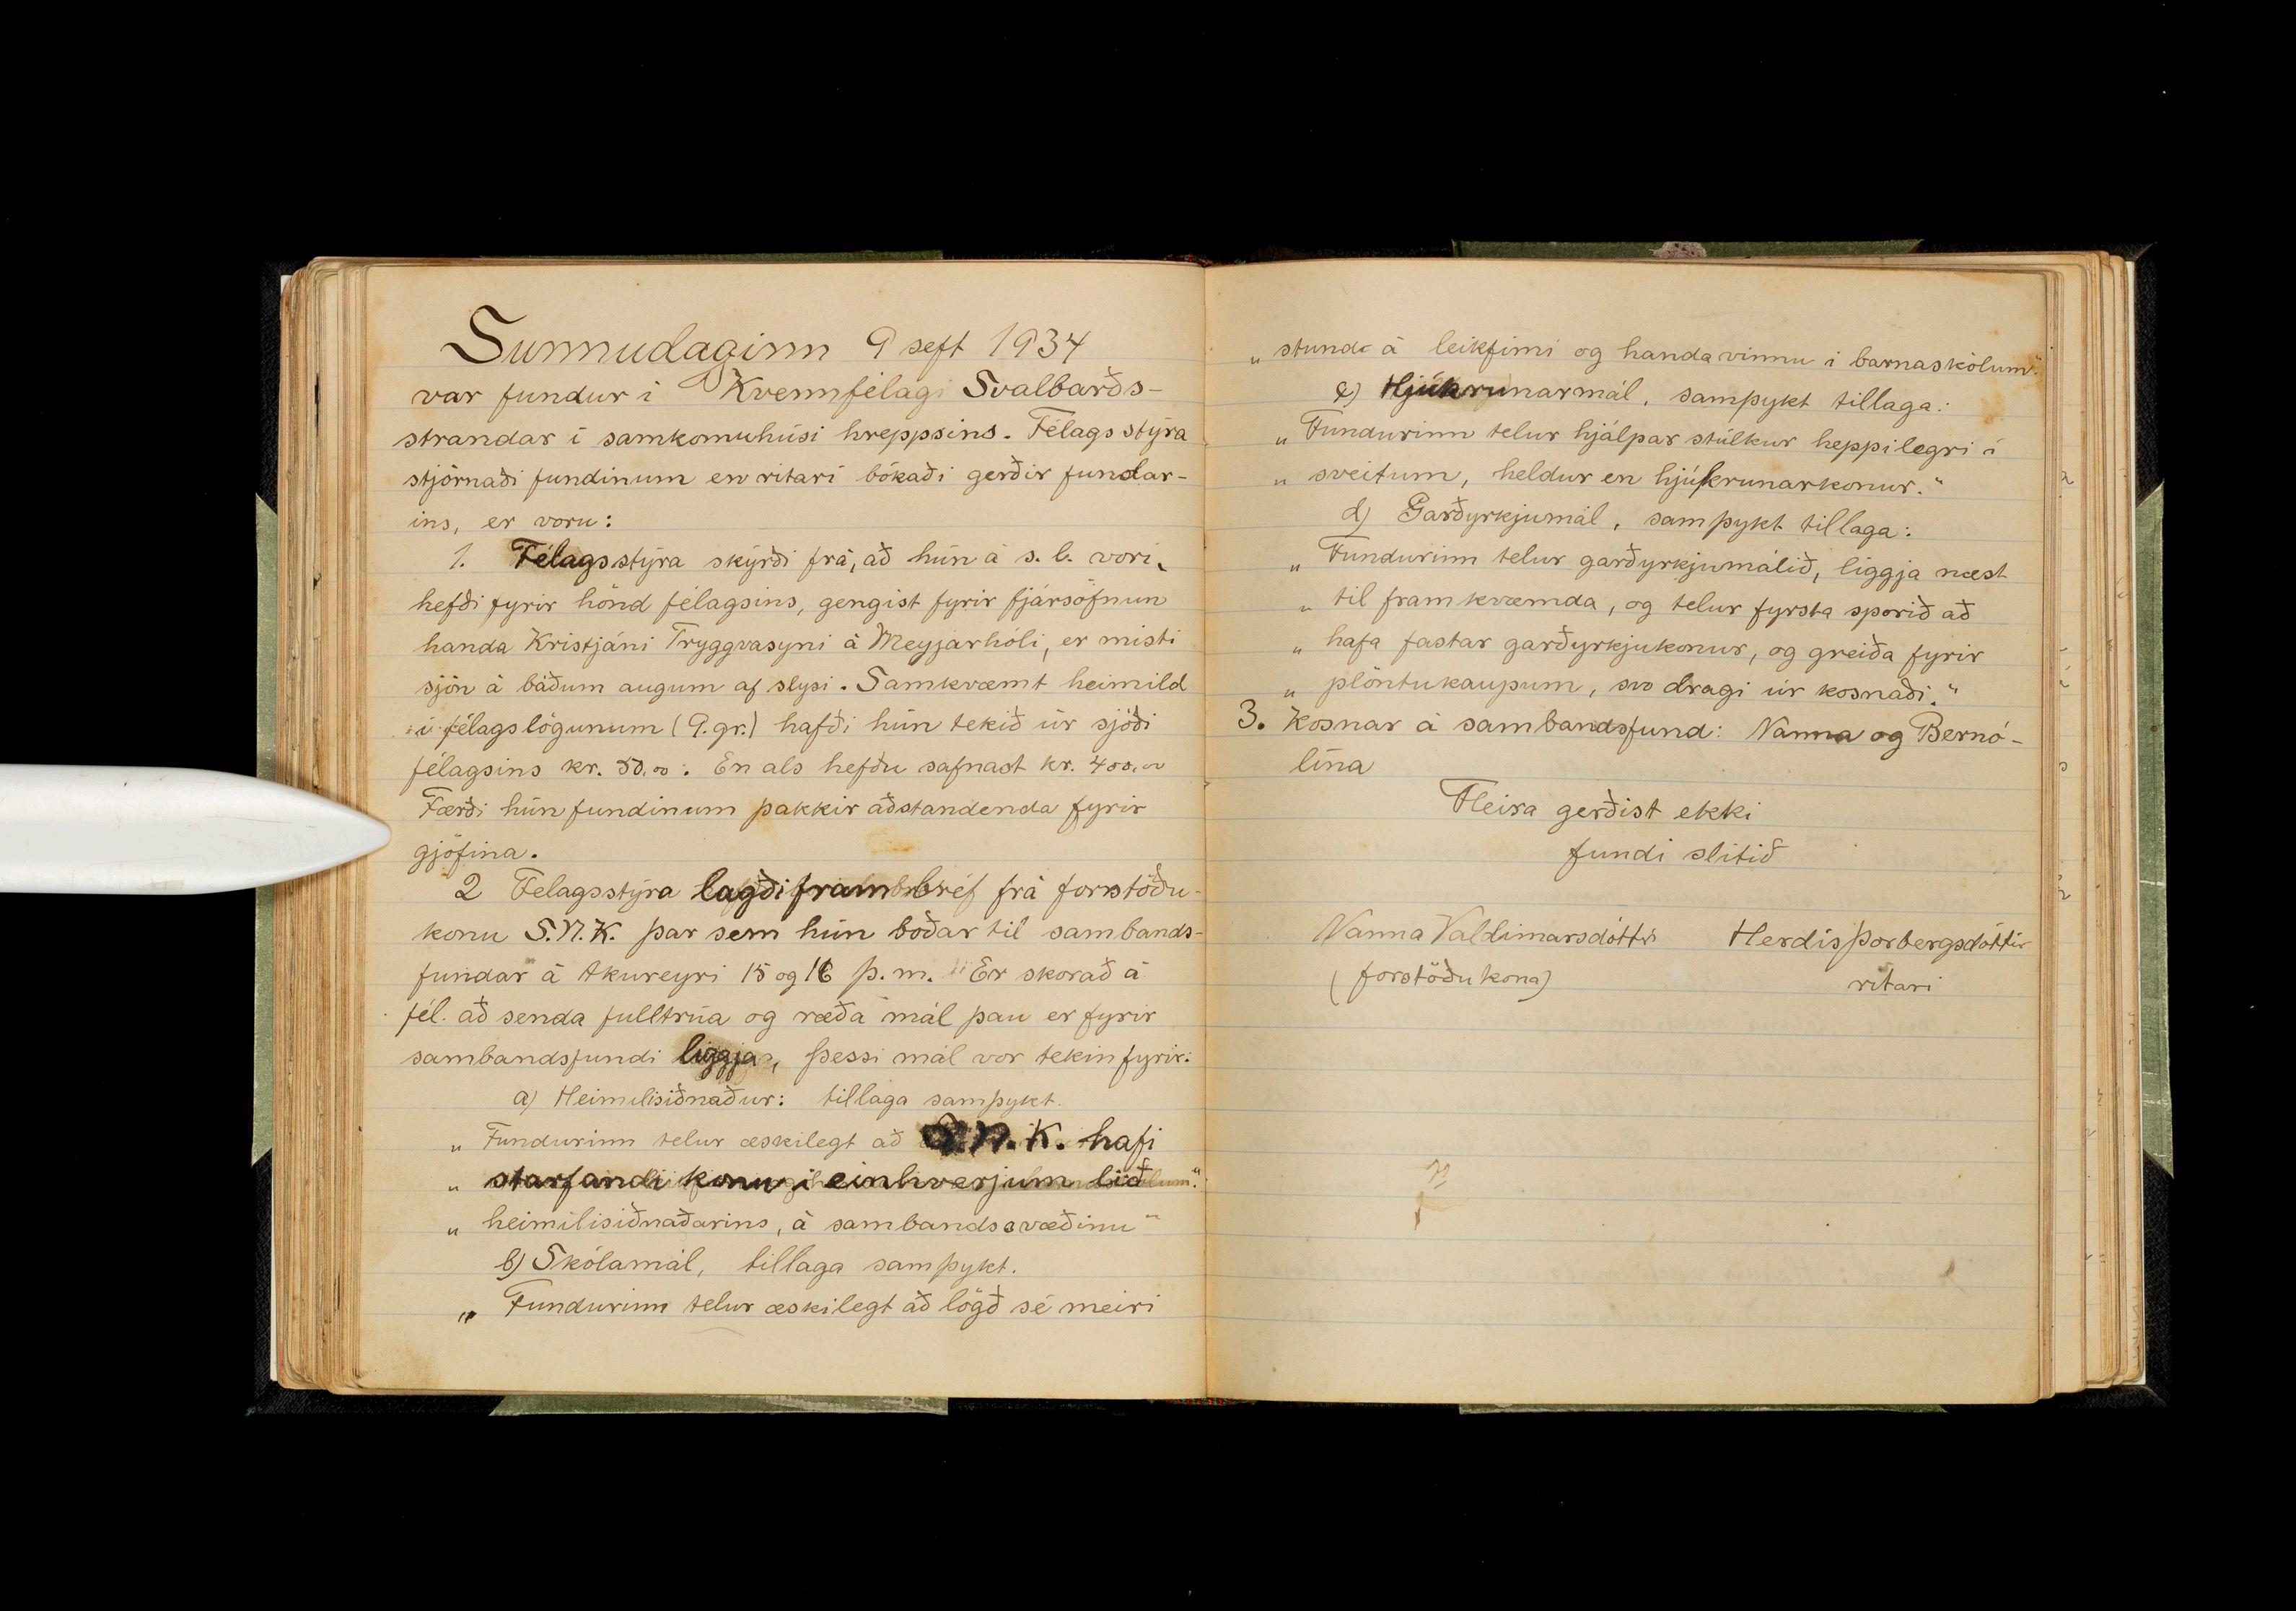 Sunnudaginn 9 sept 1934
var fundur i Kvennfélagi Svalbarðs-
strandar í samkomuhúsi hreppsins. Félagsstýra
stjórnaði fundinum en ritari bókaði gerðir fundar-
ins, er voru:
1. Félagsstýra skýrði frá, að hún á s.l. vori,
hefði fyrir hönd félagsins, gengist fyrir fjársöfnun
handa Kristjáni Tryggvasyni á Meyjarhóli, er misti
sjón á báðum augum af slysi. Samkvæmt heimild
í félagslögunum (9.gr.) hafði hún tekið úr sjóði
félagsins kr. 50,00. En als hefðu safnast kr. 400,00
Færði hún fundinum þakkir aðstandenda fyrir
gjöfina.
2 Felagsstýra lagði fram bréf frá forstöðu-
konu S.N.K. þar sem hún boðar til sambands-
fundar á Akureyri 15 og 16 þ.m. Er skorað á
fél. að senda fulltrúa og ræða mál þau er fyrir
sambandsfundi liggja, þessi mál vor tekin fyrir:
a) Heimilisiðnaður: tillaga samþykt.
„ Fundurinn telur æskilegt að S.N.K. hafi
„ starfandi konu i einhverjum lið
„ heimilisiðnaðarins, á sambandssvæðinu“
b) Skólamál, tillaga samþykt.
„ Fundurinn telur æskilegt að lögð sé meiri
„ stund á leikfimi og handavinnu i barnaskólum.“
c) Hjúkrunarmál, samþykt tillaga:
„ Fundurinn telur hjálparstúlkur heppilegri í
„ sveitum, heldur en hjúkrunarkonur.“
d) Garðyrkjumál, samþykt tillaga:
„ Fundurinn telur garðyrkjumálið, liggja næst
„ til framkvæmda, og telur fyrsta sporið að
„ hafa fastar garðyrkjukonur, og greiða fyrir
„ plöntukaupum, svo dragi úr kosnaði.“
3. Kosnar á sambandsfund: Nanna og Bernó-
lína
Fleira gerðist ekki
fundi slitið
Nanna Valdimarsdóttir Herdís Þorbergsdóttir
(forstöðukona) ritari